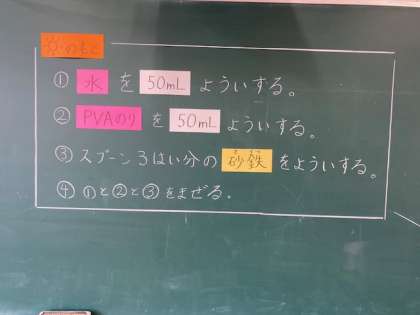 京のもと
① 水 を 50mL よういする。
② PVAのり を 50mL よういする。
③ スプーン3ばい分の 砂鉄 をよういする。
④ ①と②と③をまぜる。